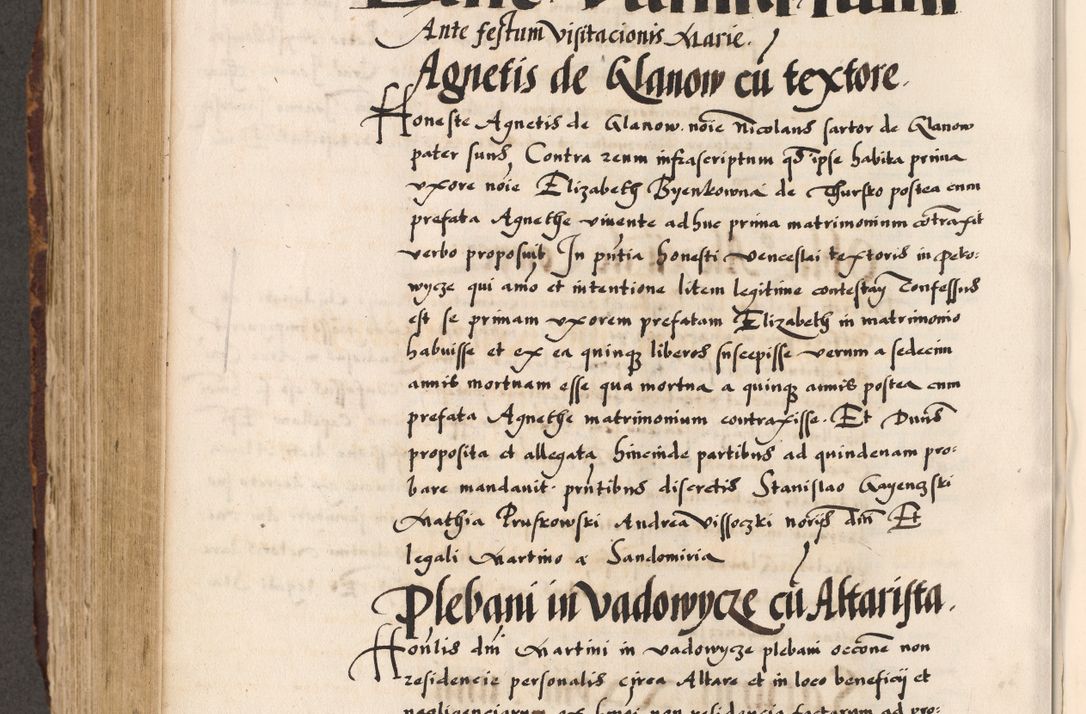 Ante festum Visitacionis Marie.
Agnetis de Glanow cū textore.
Honeste Agnetis de Glanow. noīe Nicolaus sartor de Glanow
pater suus, Contra reum infrascriptum qd ipse habita prima
uxore noīe Elizabeth Byenkowna de Thursko postea cum
prefata Agnethe vivente adhuc prima matrimonium cōtraxit
verbo proposuit In pūtia honesti Venceslai textoris in peko-
wycze qui aīo et intentione litem legitime contestaū Confessus
est se primam uxorem prefatam Elizabeth in matrimonio
habuisse et ex ea quinq liberos suscepisse verum a sedecim
annis mortuam esse qua mortua a quinq annis postea cum
prefata Agnethe matrimonium contraxisse. Et Dūus
proposita et allegata hincinde partibus ad quindenam pro-
bare mandavit. prūtibus discretis Stanislao Gayenczski
Mathia Prufkowski Andrea Vissoczki norijs dm̄ Et
legali Martino a Sandomiria
Plebani in Vadowycze cū Altarista.
Honlis dnī Martini in Vadowycze plebani occōne non
residencie personalis circa Altare et in loco beneficij et
negligenciarum ex hmoi non residencia factarum ad pro-